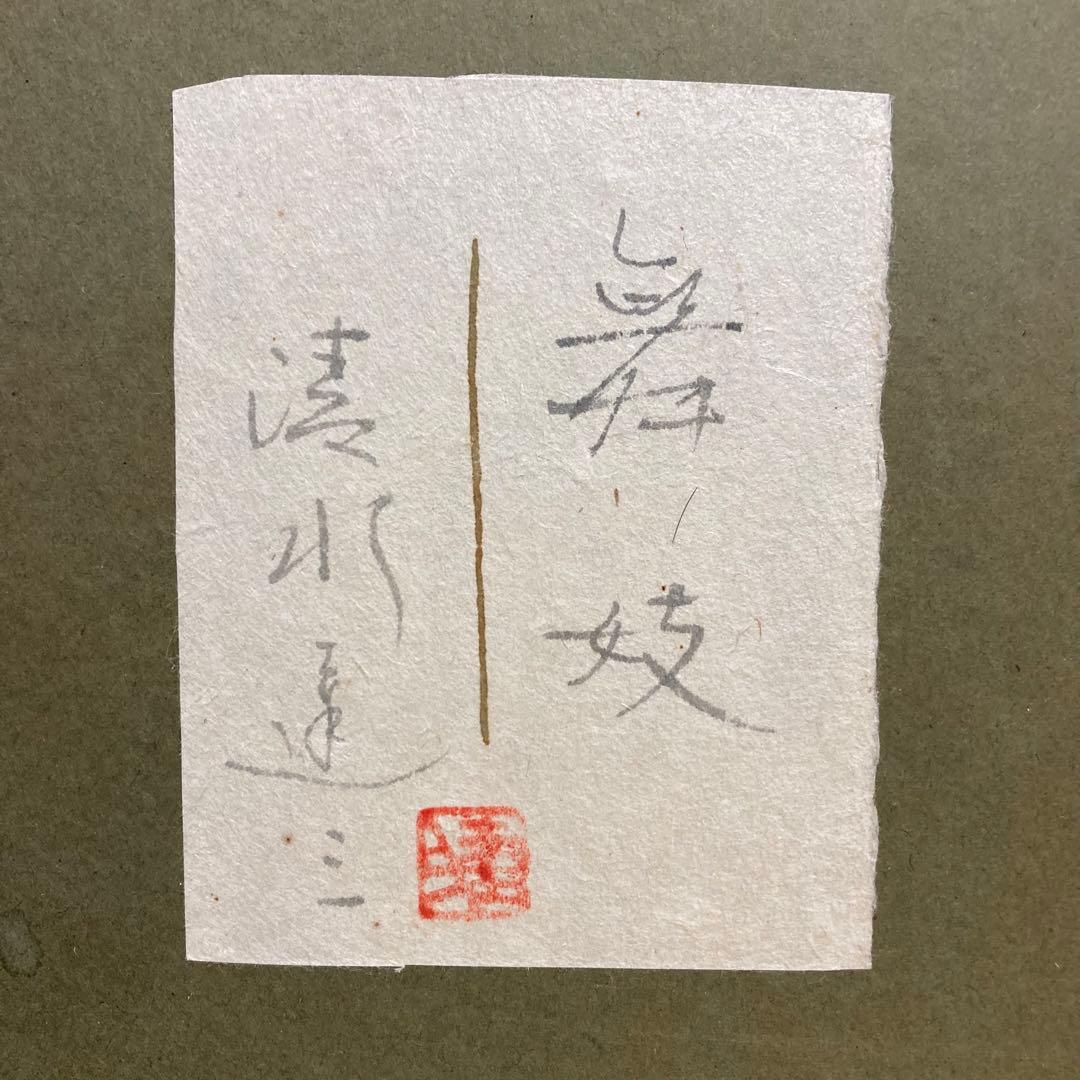 舞妓
清水達三